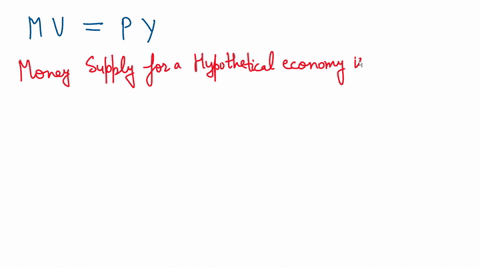 MV = PY
Money Supply for a Hypothetical economy